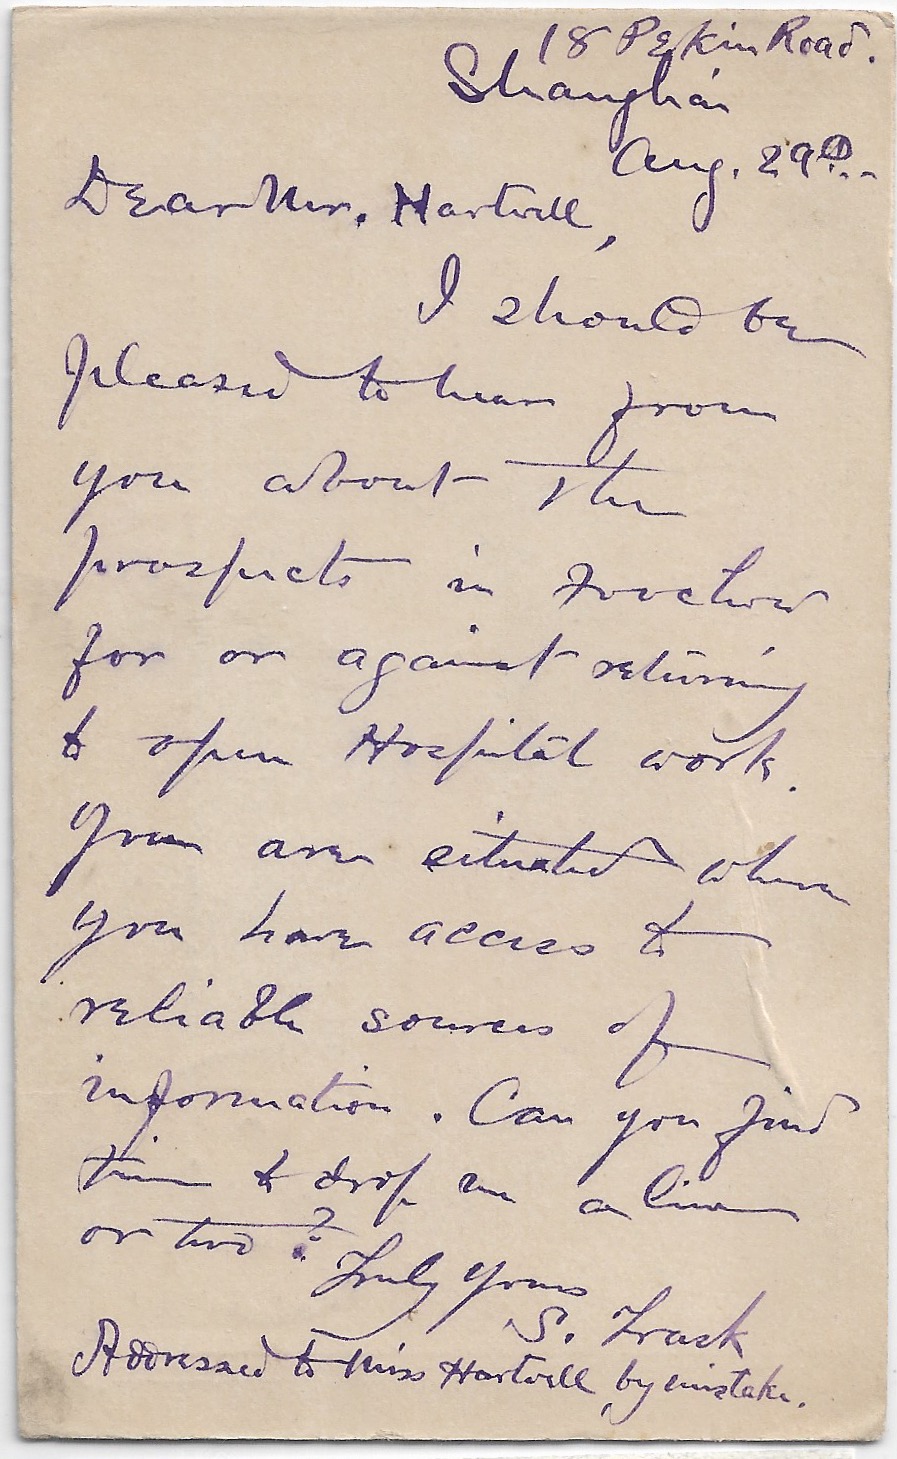 18 Pekin Road.
Shanghai
Aug. 29th..
Dear Mr. Hartwell,
I should be
pleased to hear from
you about the
prospects in Foochow
for or against returning
to open Hospital work.
You are situated where
you have access to
reliable sources of
information. Can you find
time to drop me a line
or two?
Truly yours
S. Trask
Addressed to Miss Hartwell by mistake.